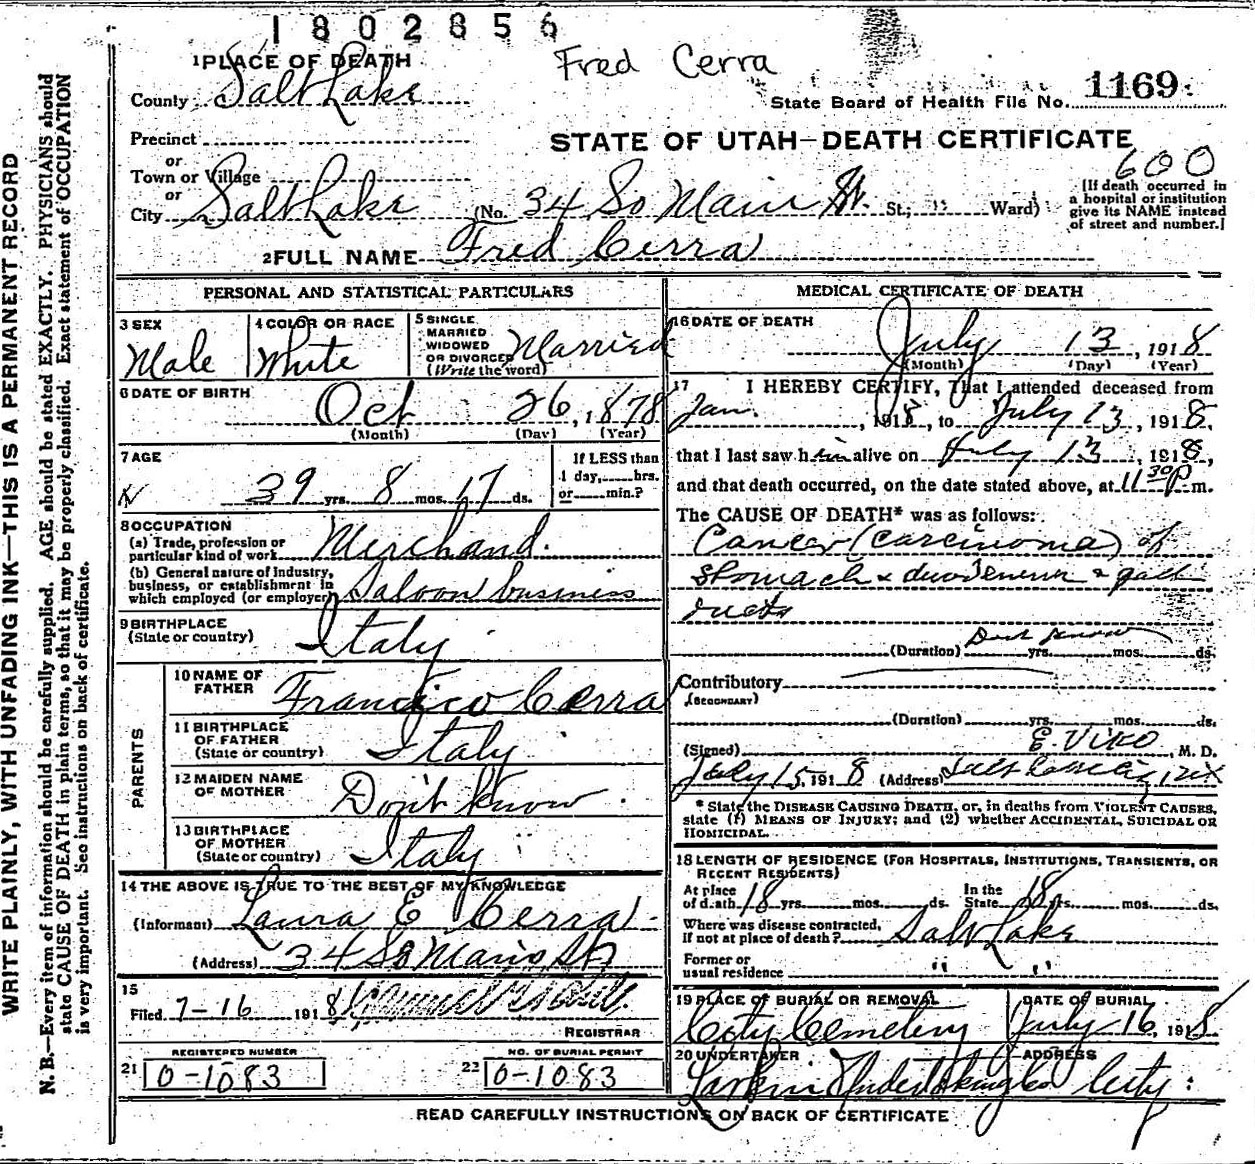 1802856
Fred Cerra
1 PLACE OF DEATH
County Salt Lake
State Board of Health File No. 1169
Precinct
STATE OF UTAH—DEATH CERTIFICATE
or
Town or Village
or
City Salt Lake (No. 34 So Main St. St.; " Ward)
600
[If death occurred in
a hospital or institution
give its NAME instead
of street and number.]
2 FULL NAME Fred Cerra
PERSONAL AND STATISTICAL PARTICULARS
3 SEX
Male
4 COLOR OR RACE
White
5 SINGLE
MARRIED
WIDOWED
OR DIVORCED
(Write the word)
Married
6 DATE OF BIRTH
Oct 26, 1878
(Month) (Day) (Year)
7 AGE
39 yrs. 8 mos. 17 ds.
If LESS than
1 day,......hrs.
or......min.?
8 OCCUPATION
(a) Trade, profession or
particular kind of work Merchand.
(b) General nature of industry,
business, or establishment in
which employed (or employer) Saloon business
9 BIRTHPLACE
(State or country) Italy
PARENTS
10 NAME OF
FATHER Francico Cerra
11 BIRTHPLACE
OF FATHER
(State or country) Italy
12 MAIDEN NAME
OF MOTHER Don't Know.
13 BIRTHPLACE
OF MOTHER
(State or country) Italy
14 THE ABOVE IS TRUE TO THE BEST OF MY KNOWLEDGE
(Informant) Laura E Cerra
(Address) 34 So Main St
15
Filed 7-16 1918
REGISTRAR
REGISTERED NUMBER
21 0-1083
NO. OF BURIAL PERMIT
22 0-1083
MEDICAL CERTIFICATE OF DEATH
16 DATE OF DEATH
July 13, 1918
(Month) (Day) (Year)
17 I HEREBY CERTIFY, That I attended deceased from
Jan. 1918, to July 13, 1918,
that I last saw him alive on July 13, 1918,
and that death occurred, on the date stated above, at 11 30 P m.
The CAUSE OF DEATH* was as follows:
Cancer (carcinoma) of
stomach & duodenum & gall
ducts
(Duration) Dont know yrs. mos. ds.
Contributory
(SECONDARY)
(Duration) yrs. mos. ds.
(Signed) E. Viko, M. D.
July 15, 1918 (Address) Salt Lake City, Utx
* State the DISEASE CAUSING DEATH, or, in deaths from VIOLENT CAUSES,
state (1) MEANS OF INJURY; and (2) whether ACCIDENTAL, SUICIDAL OR
HOMICIDAL.
18 LENGTH OF RESIDENCE (FOR HOSPITALS, INSTITUTIONS, TRANSIENTS, OR
RECENT RESIDENTS)
At place
of death 18 yrs. mos. ds.
In the
State 18 yrs. mos. ds.
Where was disease contracted,
If not at place of death? Salt Lake
Former or
usual residence " "
19 PLACE OF BURIAL OR REMOVAL
City Cemetery
DATE OF BURIAL
July 16, 1918
20 UNDERTAKER
Larkin Undertaking Co
ADDRESS
City
READ CAREFULLY INSTRUCTIONS ON BACK OF CERTIFICATE
WRITE PLAINLY, WITH UNFADING INK—THIS IS A PERMANENT RECORD
N. B.—Every item of information should be carefully supplied. AGE should be stated EXACTLY. PHYSICIANS should
state CAUSE OF DEATH in plain terms, so that it may be properly classified. Exact statement of OCCUPATION
is very important. See instructions on back of certificate.